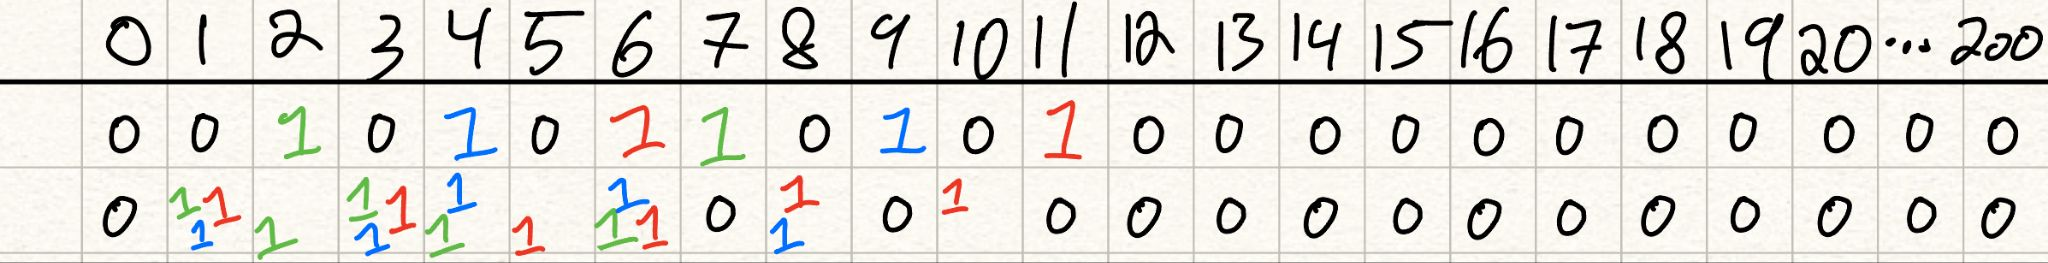 0 1 2 3 4 5 6 7 8 9 10 11 12 13 14 15 16 17 18 19 20 ... 200
0 0 1 0 1 0 1 1 0 1 0 1 0 0 0 0 0 0 0 0 0 0 0
0 1 1 1 1 1 1 1 1 1 1 1 1 1 0 1 1 0 1 0 0 0 0 0 0 0 0 0 0 0 0